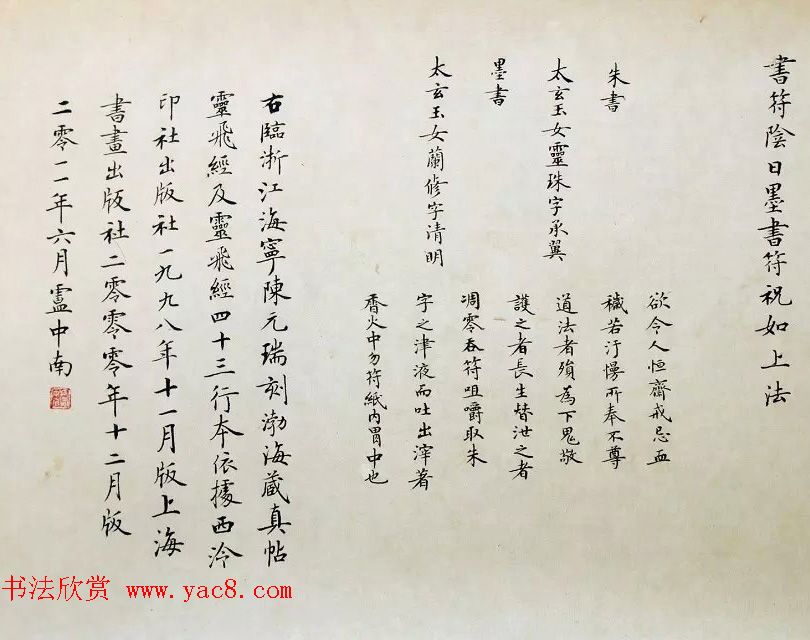 書符陰日墨書符祝如上法
欲令人恒齋戒忌血
朱書
穢若汙慢所奉不尊
太玄玉女靈珠字承翼
道法者殞為下鬼敬
護之者長生替泄之者
墨書
凋零吞符咀嚼取朱
太玄玉女蘭修字清明
字之津液而吐出滓著
香火中勿符紙內胃中也
右臨浙江海寧陳元瑞刻渤海藏真帖
靈飛經及靈飛經四十三行本依據西泠
印社出版社一九九八年十一月版上海
書畫出版社二零零零年十二月版
二零一一年六月盧中南
书法欣赏 www.yac8.com